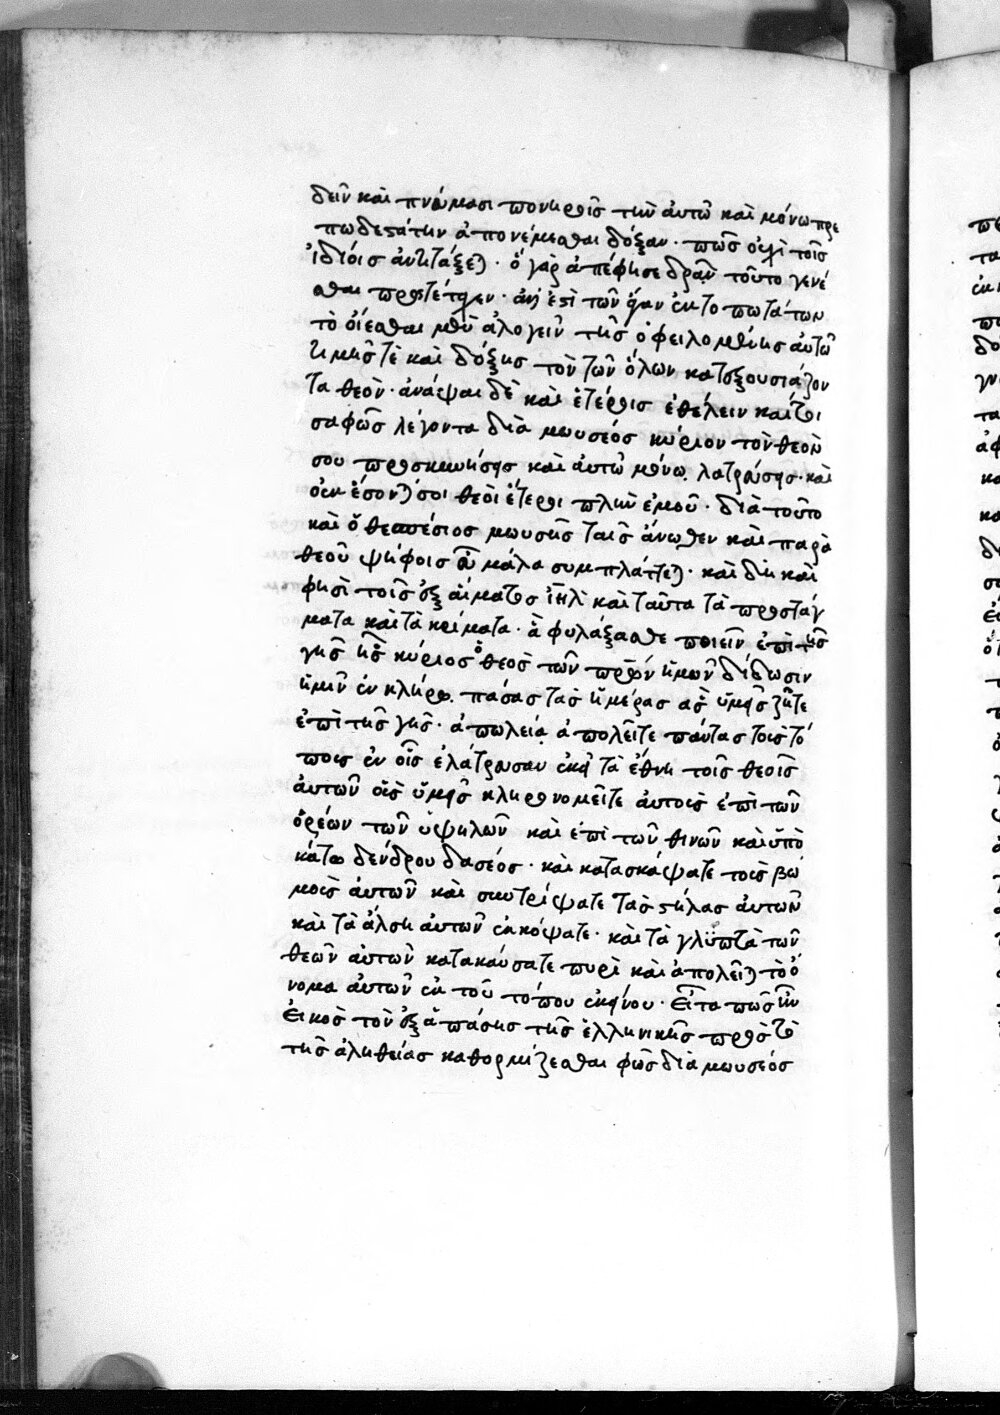 δεῖν καὶ πνεύμασι πονηροῖς τὴν αὐτῶ καὶ μόνω πρε
πωδεστάτην ἀπονέμεσθαι δόξαν· πῶς οὐχὶ τοῖς
ἰδίοις ἀντιτάξεται· ὃ γὰρ ἀπέφησε δρᾶν τοῦτο γενέ
σθαι προστέταχεν· ἐστὶ τῶν ἄγαν ἐκτοπωτάτων
τὸ οἴεσθαι μὲν ἀλογεῖν τῆς ὀφειλομένης αὐτῶ
τιμῆς τὲ καὶ δόξης τὸν τῶν ὅλων κατεξουσιάζον
τα θεὸν· ἀνάψαι δὲ καὶ ἑτέροις ἐθέλειν καίτοι
σαφῶς λέγοντα διὰ μωυσέος κύριον τὸν θεὸν
σου προσκυνήσεις καὶ αὐτῶ μόνω λατρεύσεις· καὶ
οὐκ ἔσονταί σοι θεοὶ ἕτεροι πλὴν ἐμοῦ· διὰ τοῦτο
καὶ ὁ θεσπέσιος μωυσῆς ταῖς ἄνωθεν καὶ παρὰ
θεοῦ ψήφοις εὖ μάλα συμπλάττεται· καὶ δὴ καὶ
φησὶ τοῖς ἐξ αἵματος ἰηλ καὶ ταῦτα τὰ προστάγ
ματα καὶ τὰ κρίματα· ἃ φυλάξασθε ποιεῖν ἐπὶ τῆς
γῆς ἧς κύριος ὁ θεὸς τῶν πρῶν ἡμῶν δίδωσιν
ἡμῖν ἐν κλήρω πάσας τὰς ἡμέρας ἃς ὑμεῖς ζῆτε
ἐπὶ τῆς γῆς· ἀπωλεία ἀπολεῖτε πάντας τοὺς τό
πους ἐν οἷς ἐλάτρευσαν ἐκεῖ τὰ ἔθνη τοῖς θεοῖς
αὐτῶν οὓς ὑμεῖς κληρονομεῖτε αὐτοὺς ἐπὶ τῶν
ὀρέων τῶν ὑψηλῶν καὶ ἐπὶ τῶν θινῶν καὶ ὑπὸ
κάτω δένδρου δασέος· καὶ κατασκάψατε τοὺς βω
μοὺς αὐτῶν καὶ συντρίψατε τὰς στήλας αὐτῶν
καὶ τὰ ἄλση αὐτῶν ἐκκόψατε· καὶ τὰ γλυπτὰ τῶν
θεῶν αὐτῶν κατακαύσατε πυρὶ καὶ ἀπολεῖται τὸ ὄ
νομα αὐτῶν ἐκ τοῦ τόπου ἐκείνου· Εἶτα πῶς ἦν
εἰκὸς τὸν ἐξ ἁπάσης τῆς ἑλληνικῆς πρὸς τὸ
τῆς ἀληθείας καθορμίζεσθαι φῶς διὰ μωυσέος